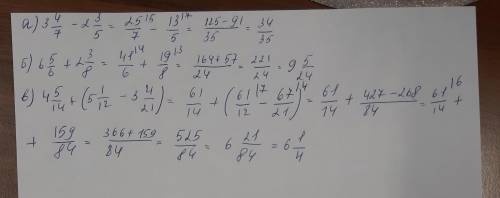 а) 3 4/7 − 2 3/5 = 25/7 \5 − 13/5 \7 = (125−91)/35 = 34/35
б) 6 5/6 + 2 3/8 = 41/6 \4 + 19/8 \3 = (164+57)/24 = 221/24 = 9 5/24
в) 4 5/14 + (5 1/12 − 3 4/21) = 61/14 + (61/12 \7 − 67/21 \4) = 61/14 + (427−268)/84 = 61/14 \6 +
+ 159/84 = (366+159)/84 = 525/84 = 6 21/84 = 6 1/4